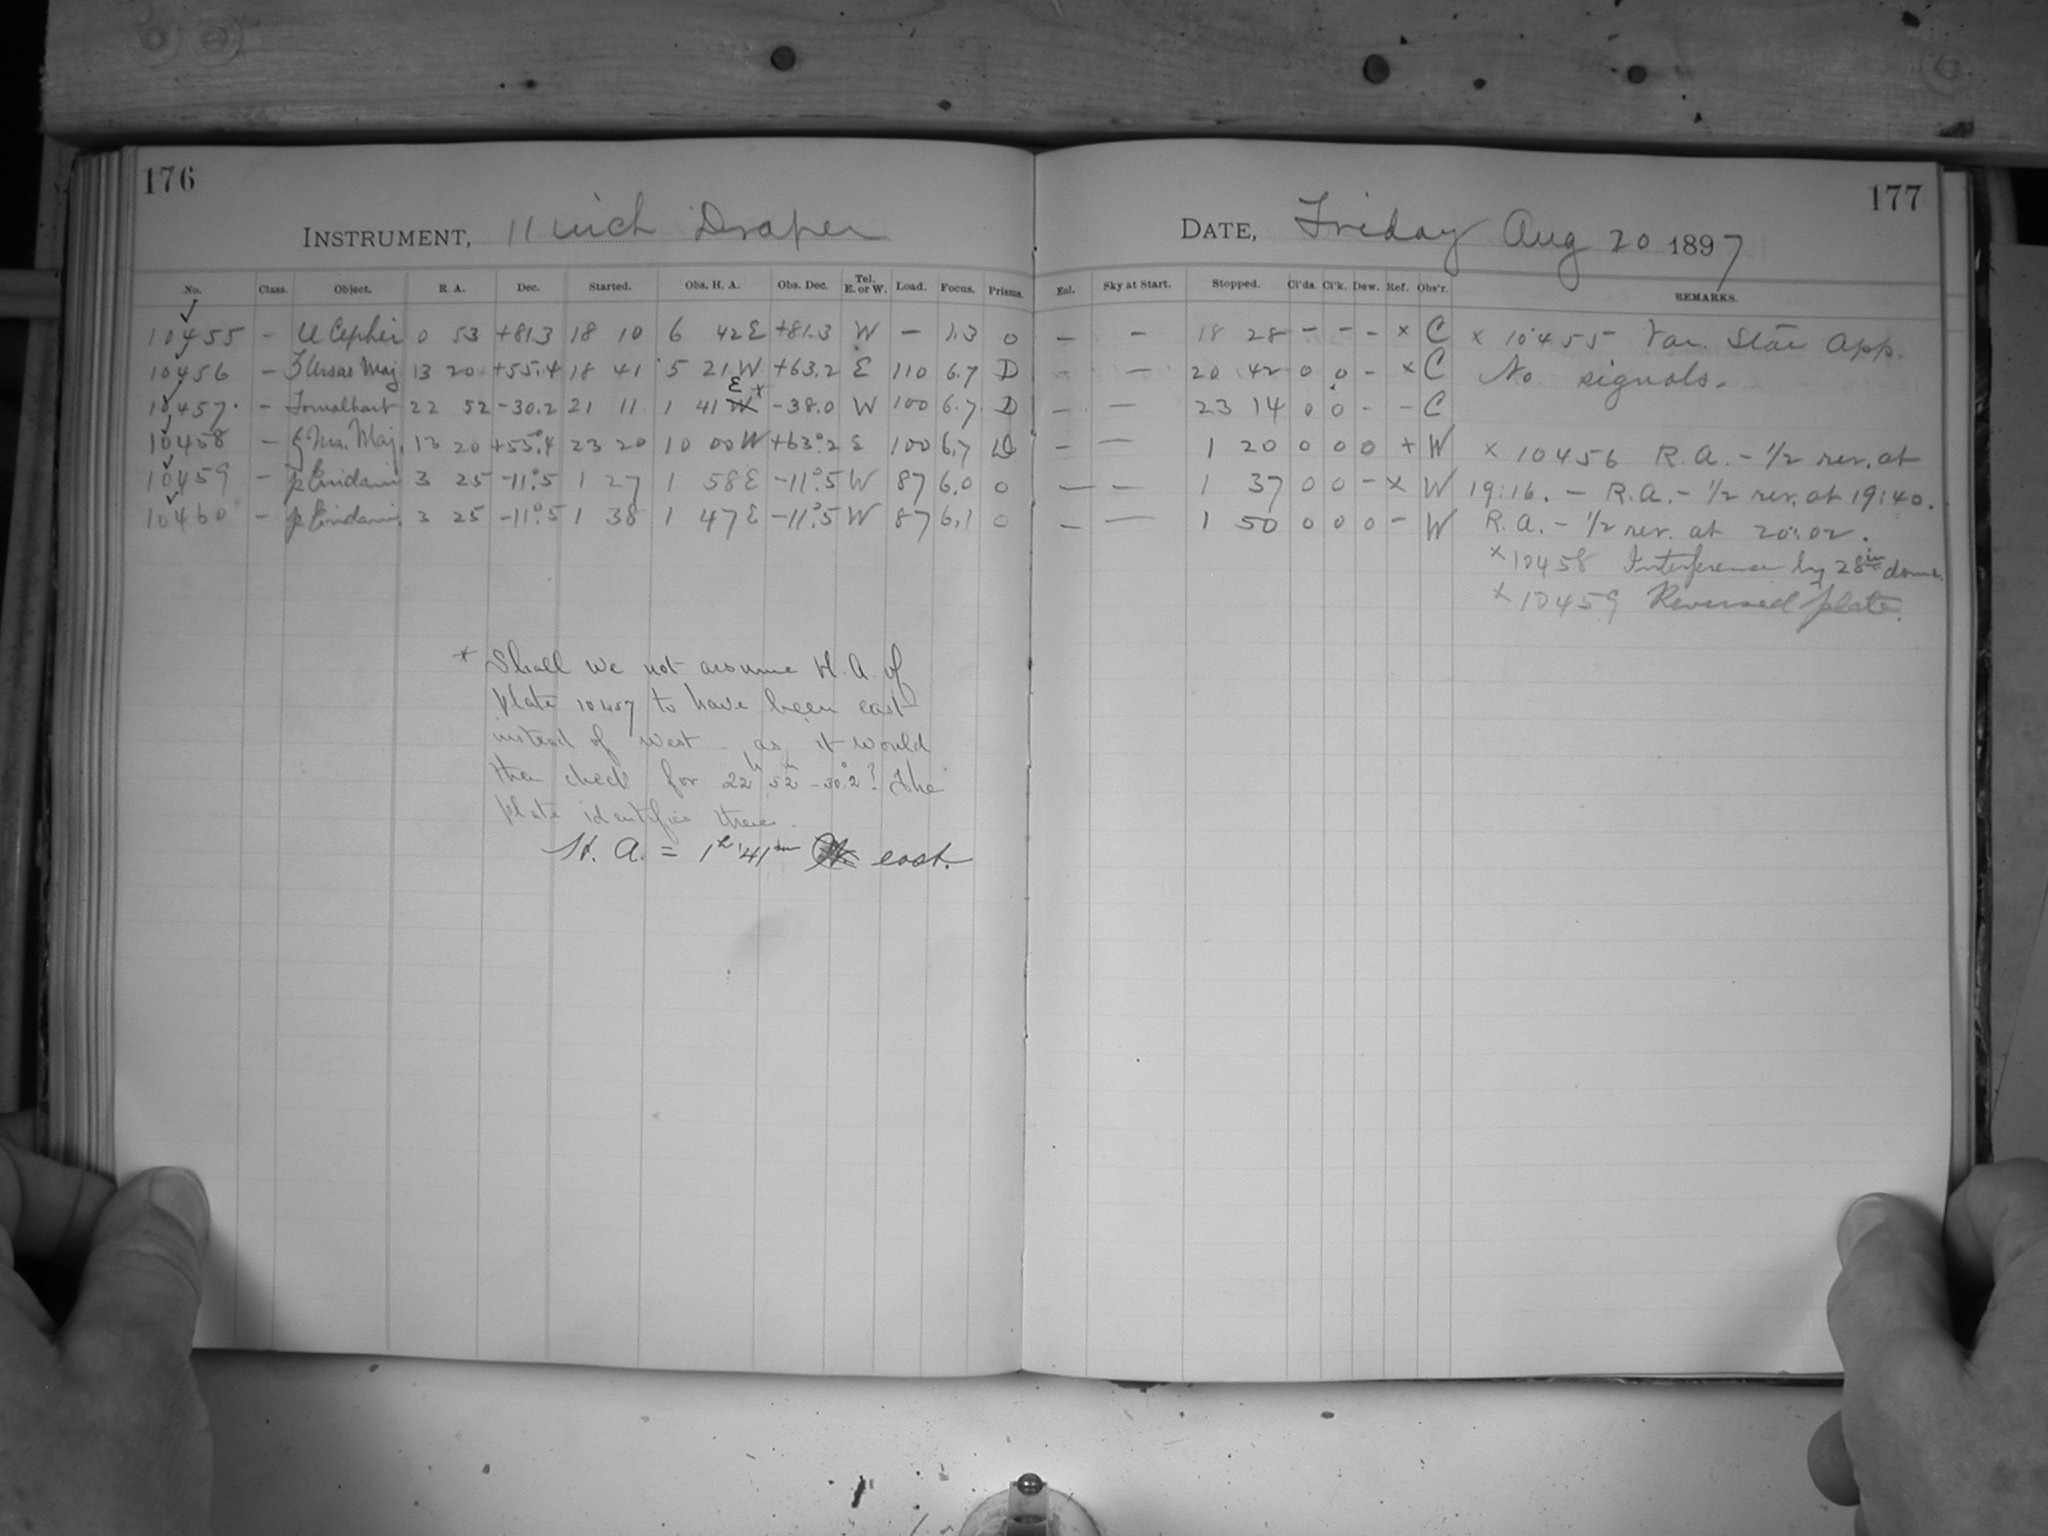 176
INSTRUMENT, 11 inch Draper
No. Class. Object. R. A. Dec. Started. Obs. H. A. Obs. Dec. Tel. E. or W. Load. Focus. Prisms.
10455 - U Cephei 0 53 +81.3 18 10 6 42 E +81.3 W - 1.3 0
10456 - ζ Ursae Maj 13 20 +55.4 18 41 5 21 W +63.2 E 110 6.7 D
10457 - Fomalhaut 22 52 -30.2 21 11 1 41 W E x -38.0 W 100 6.7 D
10458 - ξ Urs. Maj. 13 20 +55°.4 23 20 10 00 W +63°.2 E 100 6.7 D
10459 - p Eridani 3 25 -11°.5 1 27 1 58 E -11°.5 W 87 6.0 0
10460 - p Eridani 3 25 -11°.5 1 38 1 47 E -11°.5 W 87 6.1 0
* Shall we not assume H. A. of
plate 10457 to have been east
instead of west - as it would
then check for 22h 52m -30°.2? The
plate identifies there.
H. A. = 1h 41m east.
177
DATE, Friday Aug 20 1897
Enl. Sky at Start. Stopped. Cl'ds. Cl'k. Dew. Ref. Obs'r. REMARKS.
- - 18 28 - - - x C x 10455 Var. Star App.
- - 20 42 0 0 - x C No signals.
- - 23 14 0 0 - - C
- - 1 20 0 0 0 + W x 10456 R.A. - 1/2 rev. at
- - 1 37 0 0 - x W 19:16. - R.A. - 1/2 rev. at 19:40.
- - 1 50 0 0 0 - W R.A. - 1/2 rev. at 20:02.
x 10458 Interference by 28in dome.
x 10459 Reversed plate.